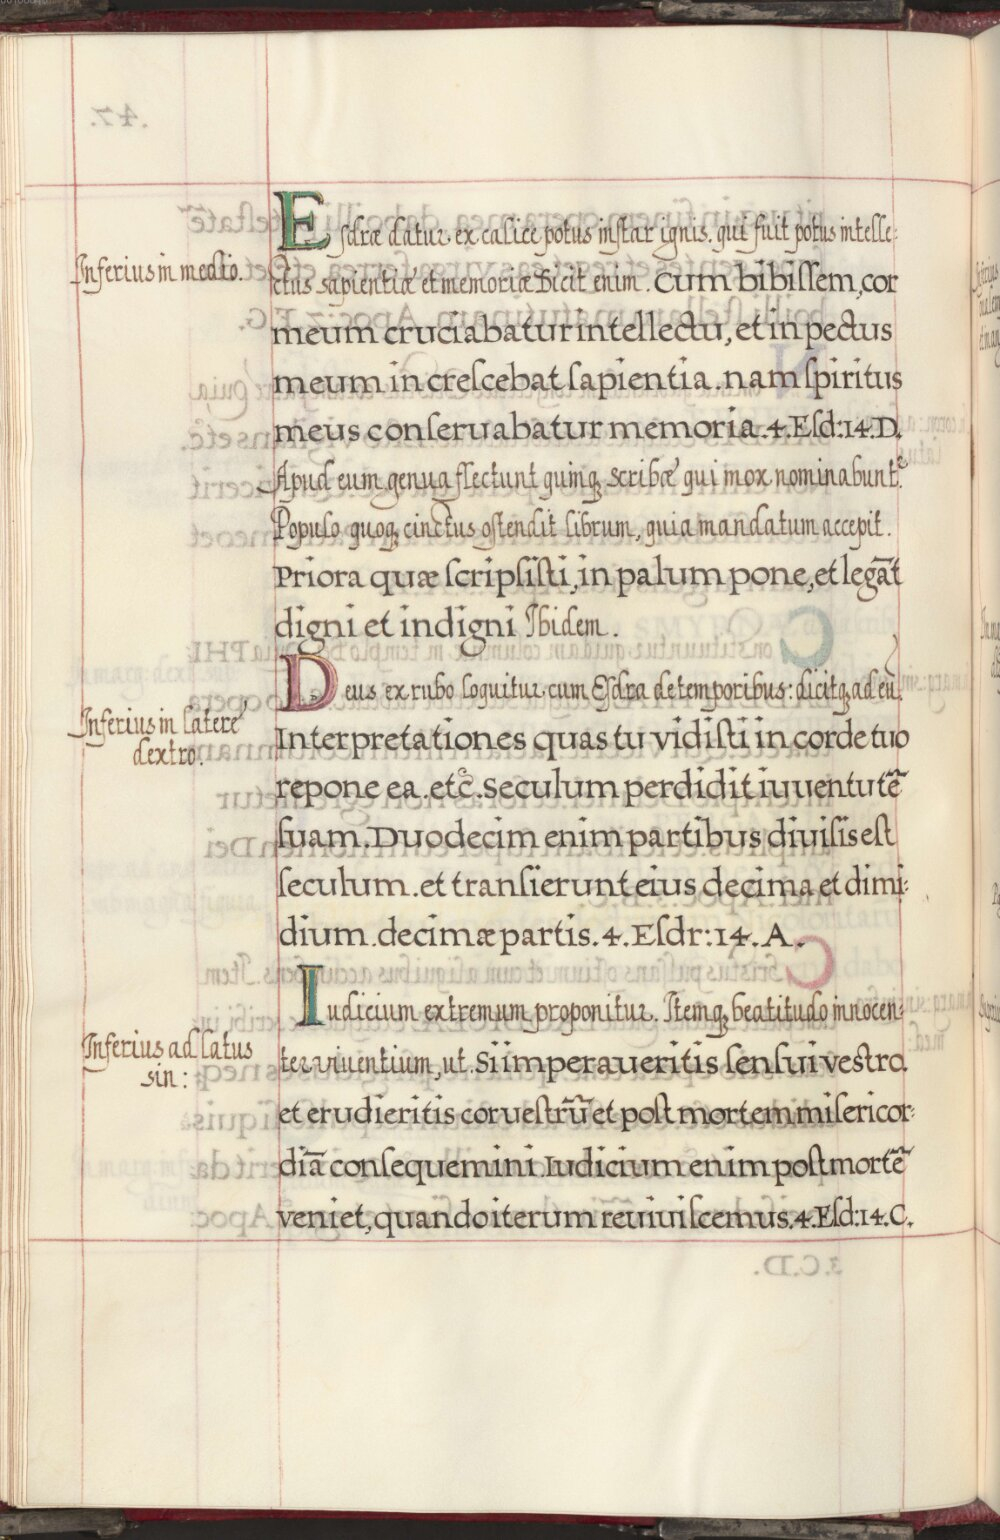 Esdræ datur ex calice potus instar ignis. qui fuit potus intelle:
Inferius in medio.
ctus sapientiæ et memoriæ Dicit enim. Cum bibissem, cor
meum cruciabatur intellectu, et in pectus
meum increscebat sapientia. nam spiritus
meus conseruabatur memoria. 4. Esd: 14. D.
Apud eum genua flectunt quinq; scribæ qui mox nominabunt̃.
Populo quoq; cinctus ostendit librum, quia mandatum accepit.
Priora quæ scripsisti, in palum pone, et legāt
digni et indigni Ibidem.
Deus ex rubo loquitur cum Esdra de temporibus: dicitq; ad eū.
Inferius in latere
dextro.
Interpretationes quas tu vidisti in corde tuo
repone ea. etc̃. Seculum perdidit iuuentutẽ
suam. Duodecim enim partibus diuisis est
seculum. et transierunt eius decima et dimi:
dium. decimæ partis. 4. Esdr: 14. A.
Iudicium extremum proponitur. Itemq; beatitudo innocen:
Inferius ad latus
sin:
ter viuentium, ut. Si imperaueritis sensui vestro.
et erudieritis cor vestrũ et post mortem misericor:
diā consequemini. Iudicium enim post mortẽ
veniet, quando iterum reviviscemus. 4. Esd: 14. C.